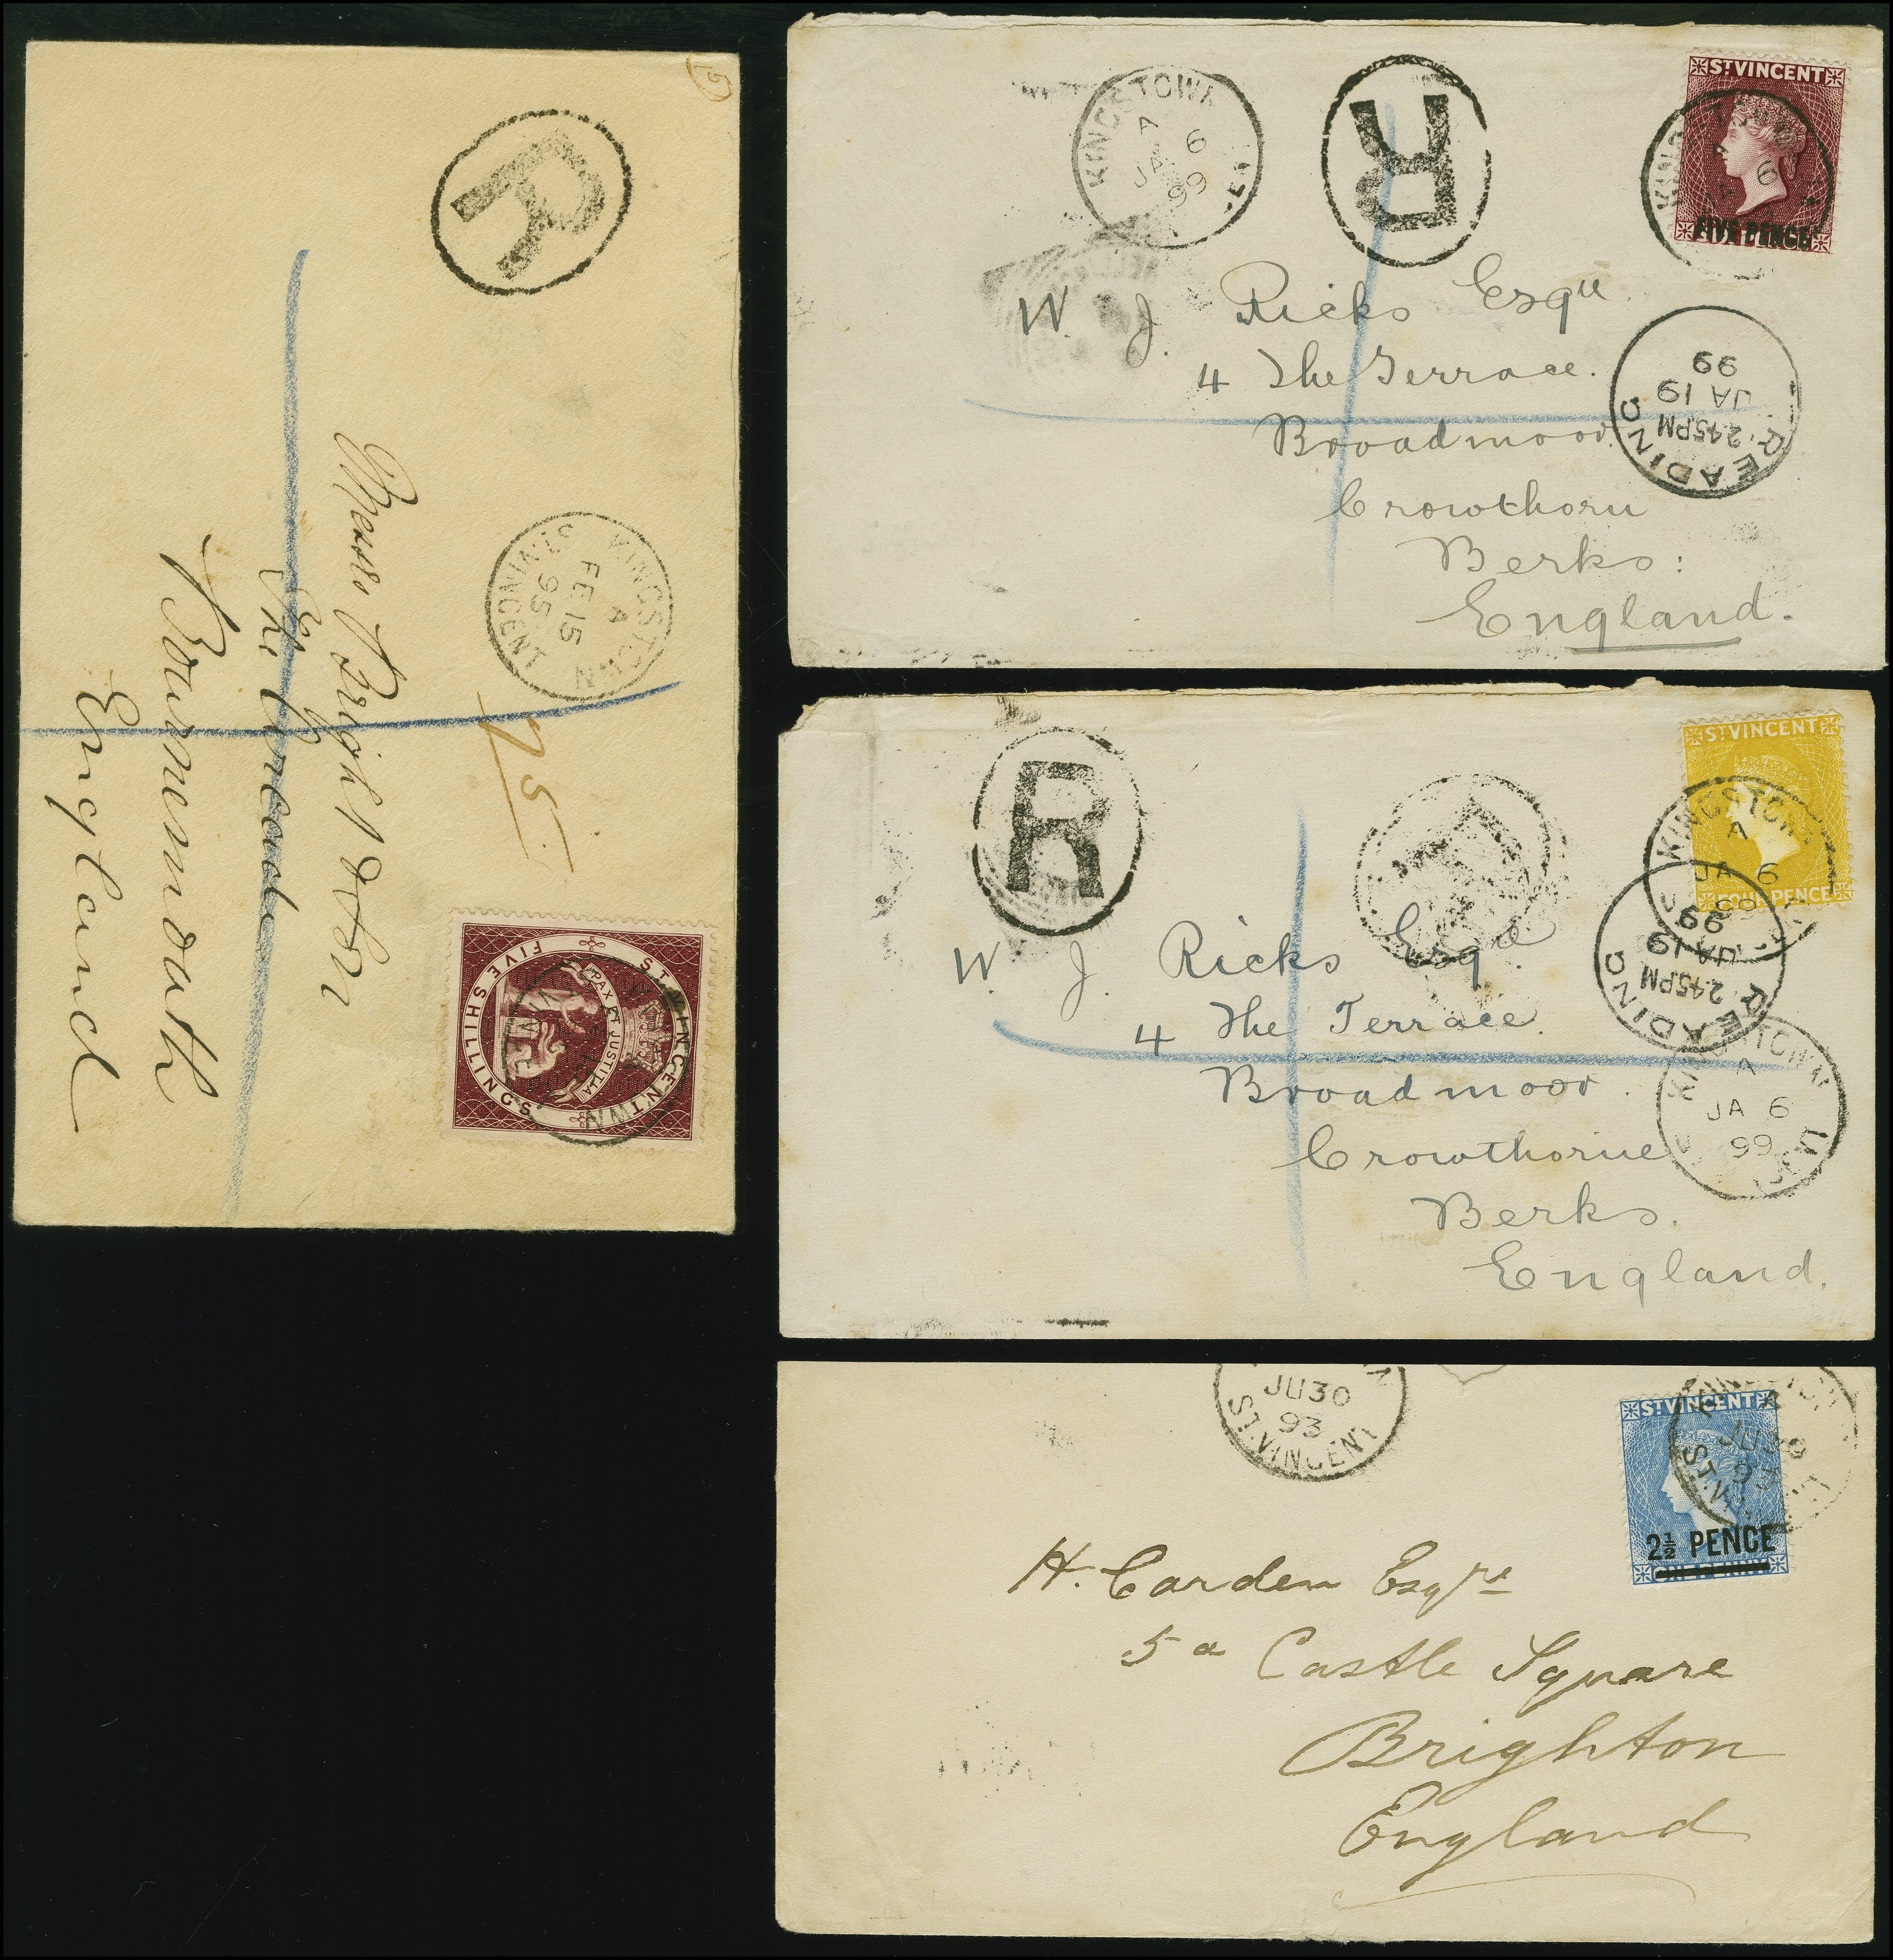 R
KINGSTOWN
A
FE 15
95
ST. VINCENT
Messrs Bright & Son
The Arcade
Bournemouth
England
75
ST. VINCENT
PAX ET JUSTITIA
FIVE SHILLINGS
KINGSTOWN
A
JA 6
99
R
ST VINCENT
FIVE PENCE
W. J. Ricks Esqre.
4 The Terrace.
Broadmoor.
Crowthorn
Berks:
England.
READING
2.45PM
JA 19
99
R
ST VINCENT
FOUR PENCE
KINGSTOWN
A
JA 6
99
W. J. Ricks Esqre.
4 The Terrace.
Broadmoor.
Crowthorne
Berks.
England.
READING
2.45PM
JA 19
99
KINGSTOWN
A
JA 6
99
JU 30
93
ST. VINCENT
ST VINCENT
2½ PENCE
ONE PENNY
JU 30
93
H. Carden Esqre
5a Castle Square
Brighton
England